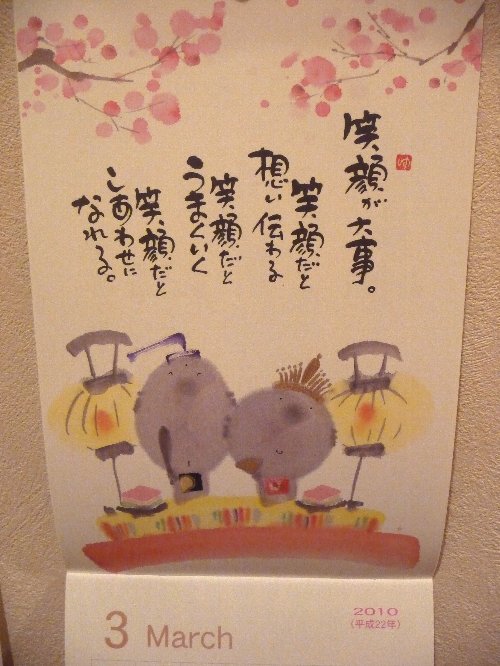 笑顔が大事。
笑顔だと
想い伝わる
笑顔だと
うまくいく
笑顔だと
しあわせに
なれる。
3 March
2010
(平成22年)